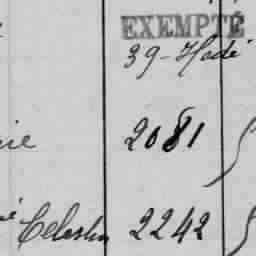 EXEMPTÉ
39-Hadé
2081
Celestin 2242